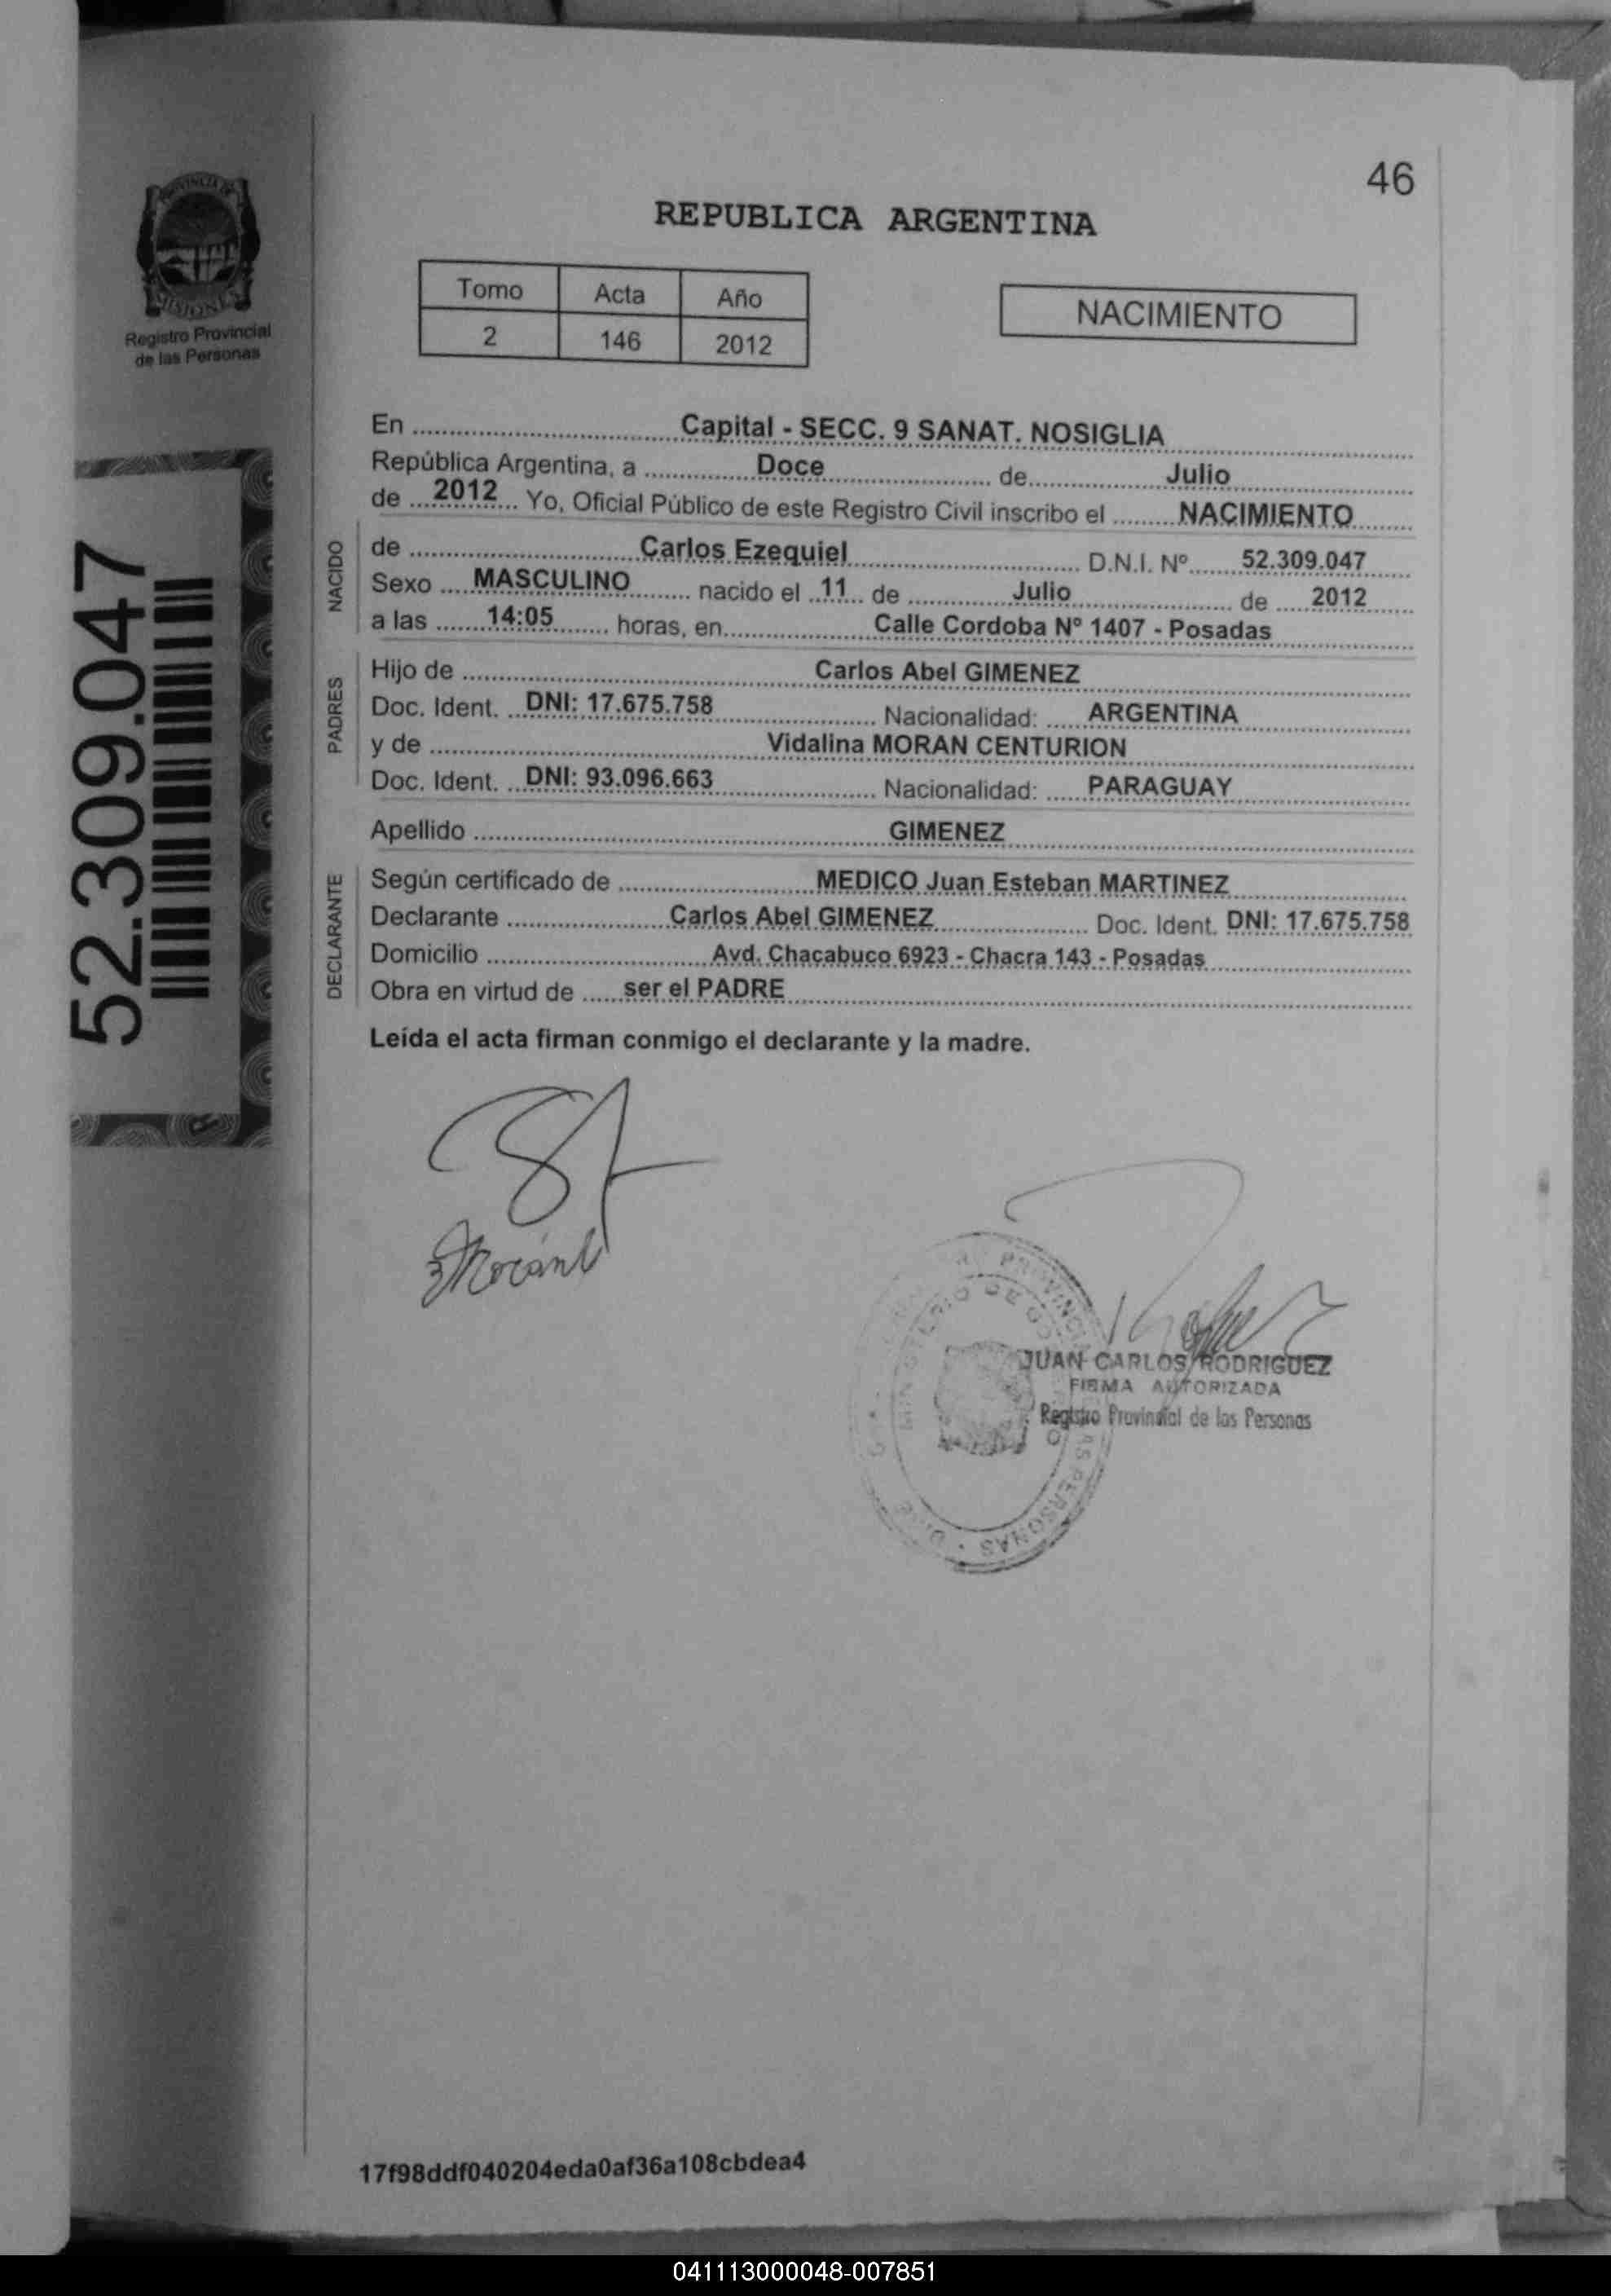 46
REPUBLICA ARGENTINA
PROVINCIA DE
MISIONES
Registro Provincial
de las Personas
Tomo Acta Año
2 146 2012
NACIMIENTO
52.309.047
En Capital - SECC. 9 SANAT. NOSIGLIA
República Argentina, a Doce de Julio
de 2012 Yo, Oficial Público de este Registro Civil inscribo el NACIMIENTO
NACIDO
de Carlos Ezequiel D.N.I. Nº 52.309.047
Sexo MASCULINO nacido el 11 de Julio de 2012
a las 14:05 horas, en Calle Cordoba Nº 1407 - Posadas
PADRES
Hijo de Carlos Abel GIMENEZ
Doc. Ident. DNI: 17.675.758 Nacionalidad: ARGENTINA
y de Vidalina MORAN CENTURION
Doc. Ident. DNI: 93.096.663 Nacionalidad: PARAGUAY
Apellido GIMENEZ
DECLARANTE
Según certificado de MEDICO Juan Esteban MARTINEZ
Declarante Carlos Abel GIMENEZ Doc. Ident. DNI: 17.675.758
Domicilio Avd. Chacabuco 6923 - Chacra 143 - Posadas
Obra en virtud de ser el PADRE
Leída el acta firman conmigo el declarante y la madre.
JUAN CARLOS RODRIGUEZ
FIRMA AUTORIZADA
Registro Provincial de las Personas
17f98ddf040204eda0af36a108cbdea4
041113000048-007851